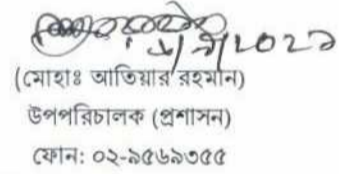 (মোহাঃ আতিয়ার রহমান)
উপপরিচালক (প্রশাসন)
ফোন: ০২-৯৫৬৯৩৫৫